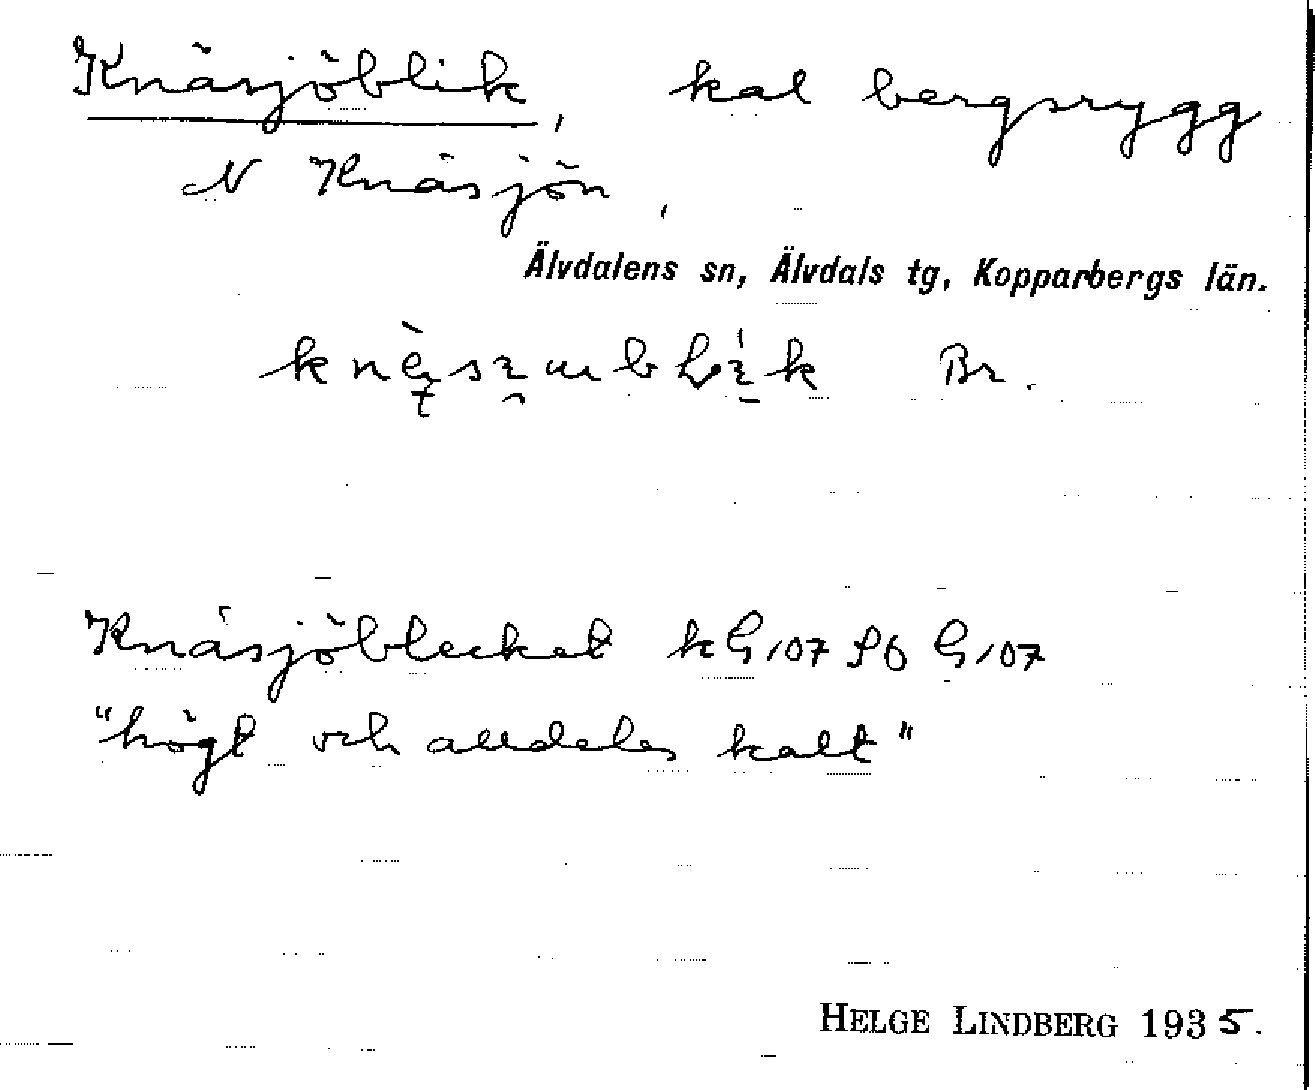 Knäsjöblik, kal bergsrygg
N Knäsjön,
Älvdalens sn, Älvdals tg, Kopparbergs län.
Br.
Knäsjöblecket kG107 Sb G107
"högt och alldeles kalt"
HELGE LINDBERG 1935.